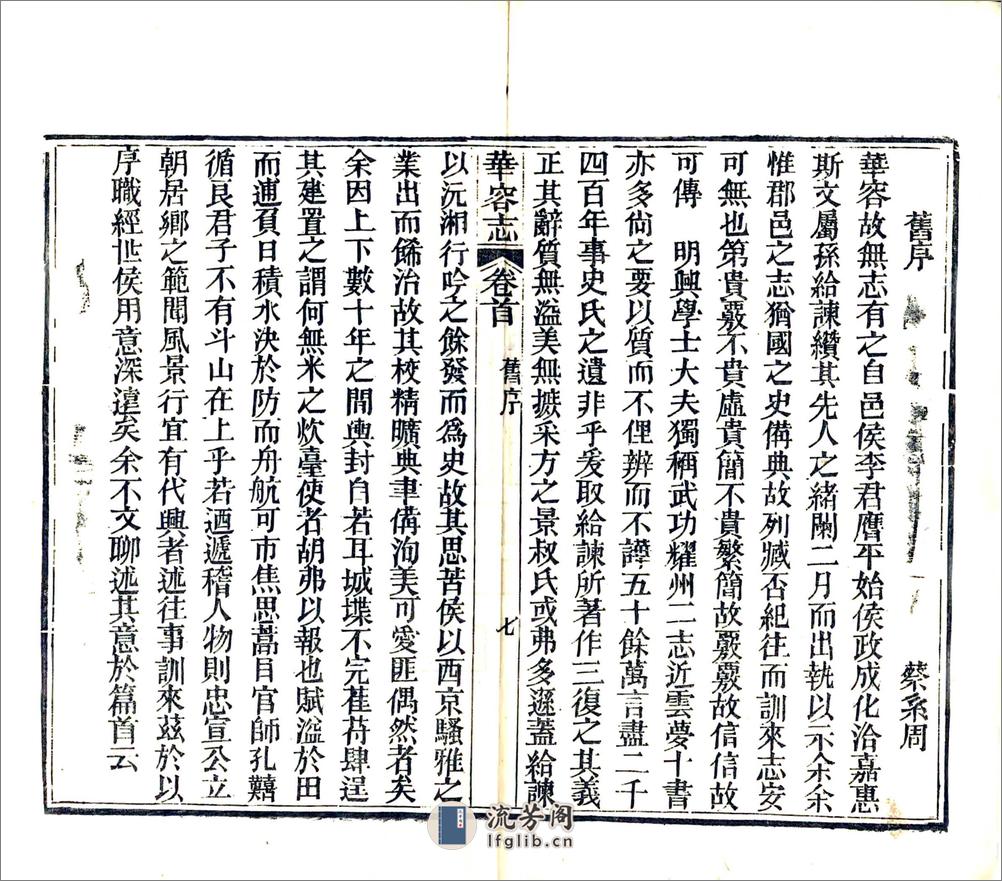 舊序
蔡系周
華容故無志有之自邑侯李君膺平始侯政成化洽嘉惠
斯文屬孫給諫纘其先人之緒閱二月而出執以示余余
惟郡邑之志猶國之史備典故列臧否紀往而訓來志安
可無也第貴覈不貴虛貴簡不貴繁簡故覈覈故信信故
可傳 明興學士大夫獨稱武功耀州二志近雲夢十書
亦多尙之要以質而不俚辨而不譁五十餘萬言盡二千
四百年事史氏之遺非乎爰取給諫所著作三復之其義
正其辭質無溢美無摭采方之景叔氏或弗多遜蓋給諫
華容志 卷首 舊序 七
以沅湘行吟之餘發而爲史故其思苦侯以西京騷雅之
業出而餙治故其校精曠典聿備洵美可愛匪偶然者矣
余因上下數十年之間輿封自若耳城堞不完萑苻肆逞
其建置之謂何無米之炊臺使者胡弗以報也賦溢於田
而逋頁日積水決於防而舟航可市焦思蒿目官師孔囏
循良君子不有斗山在上乎若迺遞稽人物則忠宣公立
朝居鄉之範聞風景行宜有代興者述往事訓來茲於以
序職經世侯用意深遠矣余不文聊述其意於篇首云
流芳閣
lfglib.cn